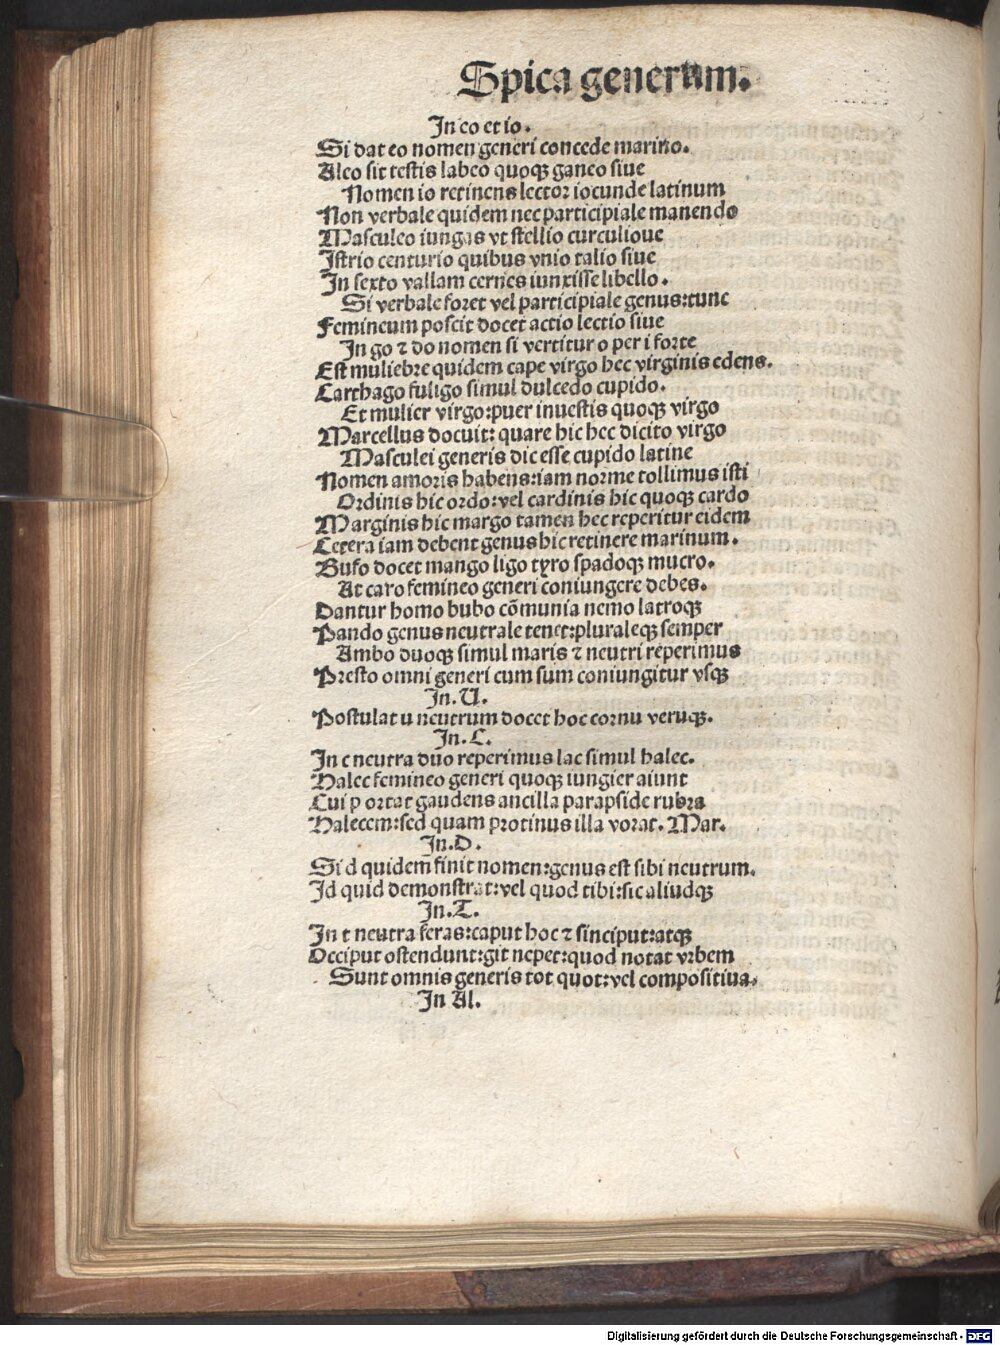 Spica generum.
In eo et io.
Si dat eo nomen generi concede marino.
Aleo sit testis labeo quoqꝫ ganeo siue
Nomen io retinens lector iocunde latinum
Non verbale quidem nec participiale manendo
Masculeo iungas vt stellio curculioue
Istrio centurio quibus vnio talio siue
In sexto vallam cernes iunxisse libello.
Si verbale foret vel participiale genus:tunc
Femineum poscit docet actio lectio siue
In go ⁊ do nomen si vertitur o per i forte
Est muliebre quidem cape virgo hec virginis edens.
Carthago fuligo simul dulcedo cupido.
Et mulier virgo:puer inuestis quoqꝫ virgo
Marcellus docuit: quare hic hec dicito virgo
Masculei generis dic esse cupido latine
Nomen amoris habens:iam norme tollimus isti
Ordinis hic ordo:vel cardinis hic quoqꝫ cardo
Marginis hic margo tamen hec reperitur eidem
Cetera iam debent genus hic retinere marinum.
Bufo docet mango ligo tyro spadoqꝫ mucro.
At caro femineo generi coniungere debes.
Dantur homo bubo cōmunia nemo latroqꝫ
Pando genus neutrale tenet:pluraleqꝫ semper
Ambo duoqꝫ simul maris ⁊ neutri reperimus
Presto omni generi cum sum coniungitur vsqꝫ
In. U.
Postulat u neutrum docet hoc cornu veruqꝫ.
In. C.
In c neutra duo reperimus lac simul halec.
Halec femineo generi quoqꝫ iungier aiunt
Cui p ortat gaudens ancilla parapside rubra
Halecem:sed quam protinus illa vorat. Mar.
In. D.
Si d quidem finit nomen:genus est sibi neutrum.
Id quid demonstrat:vel quod tibi:sic aliudqꝫ
In. T.
In t neutra feras:caput hoc ⁊ sinciput:atqꝫ
Occiput ostendunt:git nepet:quod notat vrbem
Sunt omnis generis tot quot:vel compositiua.
In Al.
Digitalisierung gefördert durch die Deutsche Forschungsgemeinschaft - DFG